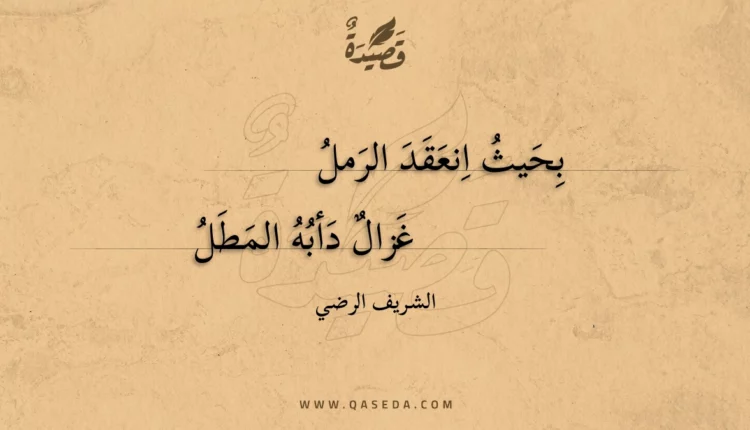 قَصِيْدَةٌ
بِحَيثُ اِنعَقَدَ الرَملُ
غَزالٌ دَأبُهُ المَطَلُ
الشريف الرضي
WWW.QASEDA.COM